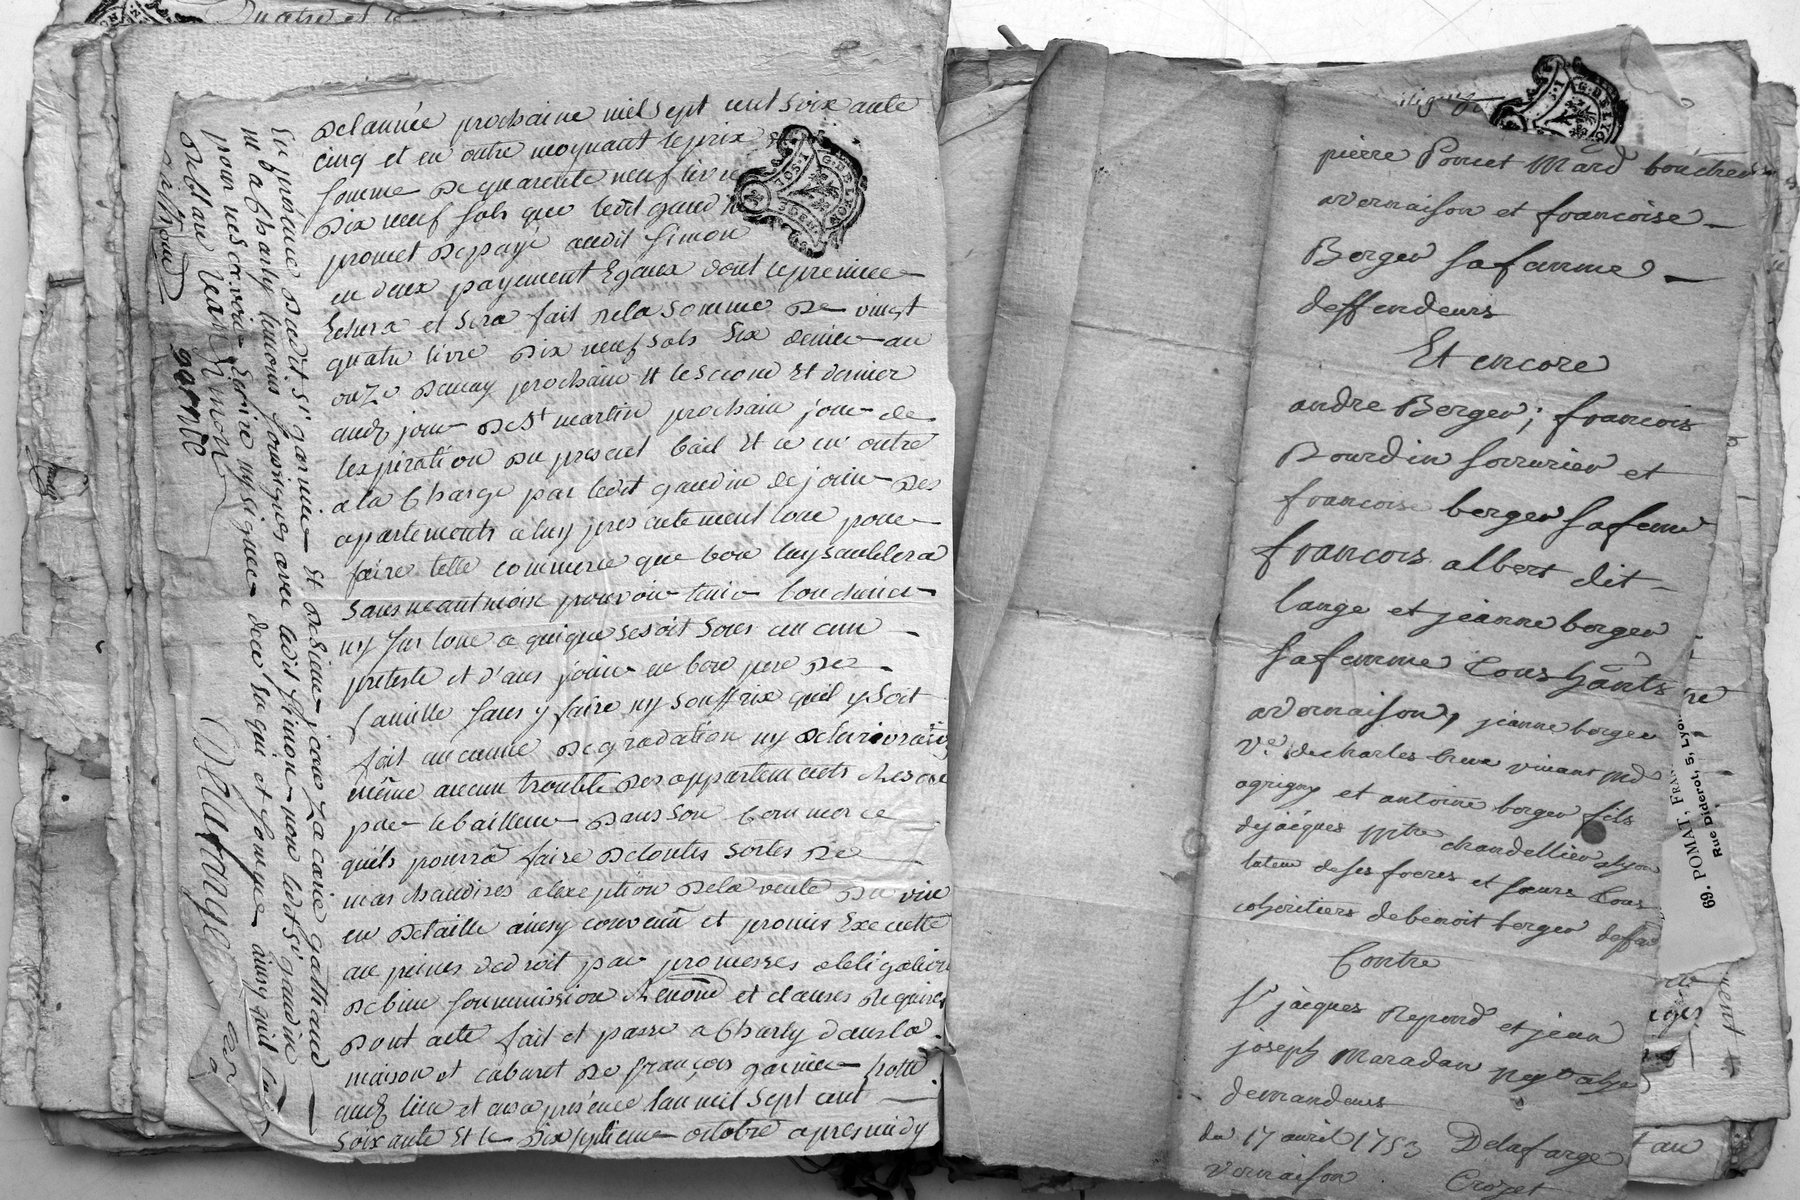 Quatre et
Delannée prochaine mil sept cent soixante
cinq et en outre moyenant le prix &
somme De quarente neuf livre
Dix neuf sols que ledit gaudin
promet De payé audit simon
en deux payement Egaux dont le premier
Echera et sera fait Dela somme De vingt
quatre livre Dix neuf sols six denier au
onze De may prochain Et le second Et dernier
audt jour De St martin prochain jour de
lexpiration Du present bail Et ce en outre
a la Charge par ledit gaudin de jouir Des
apartements a luy presentement loué pour
faire telle commerce que bon luy semblera
sans neantmoins pouvoir tenir boucherie
ny sur loué a quique sesoit sous aucun
preteste et d'ans jouir en bon pere De
famille sans y faire ny souffrir quil y soit
fait aucunne Degradation ny Deteriorations
même aucun trouble Des appartements
par le bailleur Dans son Commerce
quils pourra faire De toutes sortes De
marchandises alexeption Dela vente Du vin
en Detaille ainsy convenü et promis Executté
au peines dedroit par promesses obligation
De bien soummission Renon et clauses Requises
Dont acte fait et passé a Charly dans la
maison et cabaret De françois garnier hotte
audt lieu et en sa presence l'an mil sept cent
soixante Et le Dix septieme octobre apres midy
En presence Dudit Sr garnier Et De Sieur jean Zacarie galthaud
m b a Charly temoins soussignes avec ledit simon non ledit Sr gaudin
pour ne scavoir Ecrire ny signer de ce enqui et somé ainsy quil
De blanc Jean Simon
garnié
Delaforge
pierre Poncet Mard boucher
avernaison et francoise
Berger sa famme
deffendeurs
Et encore
andre Berger; francois
Bourdin serrurier et
francoise berger sa feme
francois albert dit
lange et jeanne berger
sa famme tous hants
avernaison, jeanne berger
Ve decharles breue vivant md
agrigny et antoine berger fils
dejacques pptre chandellier alyon
tuteur de ses freres et soeurs tous
cohéritiers debenoit berger deffdrs
Contre
Sr jacques Repond et jean
joseph Maradan negts alyon
demandeurs
du 17 avril 1753 Delafarge
vernaison Crozet
69. POMAT, FRAN
Rue Diderot, 5, Lyo
G. DE LYON